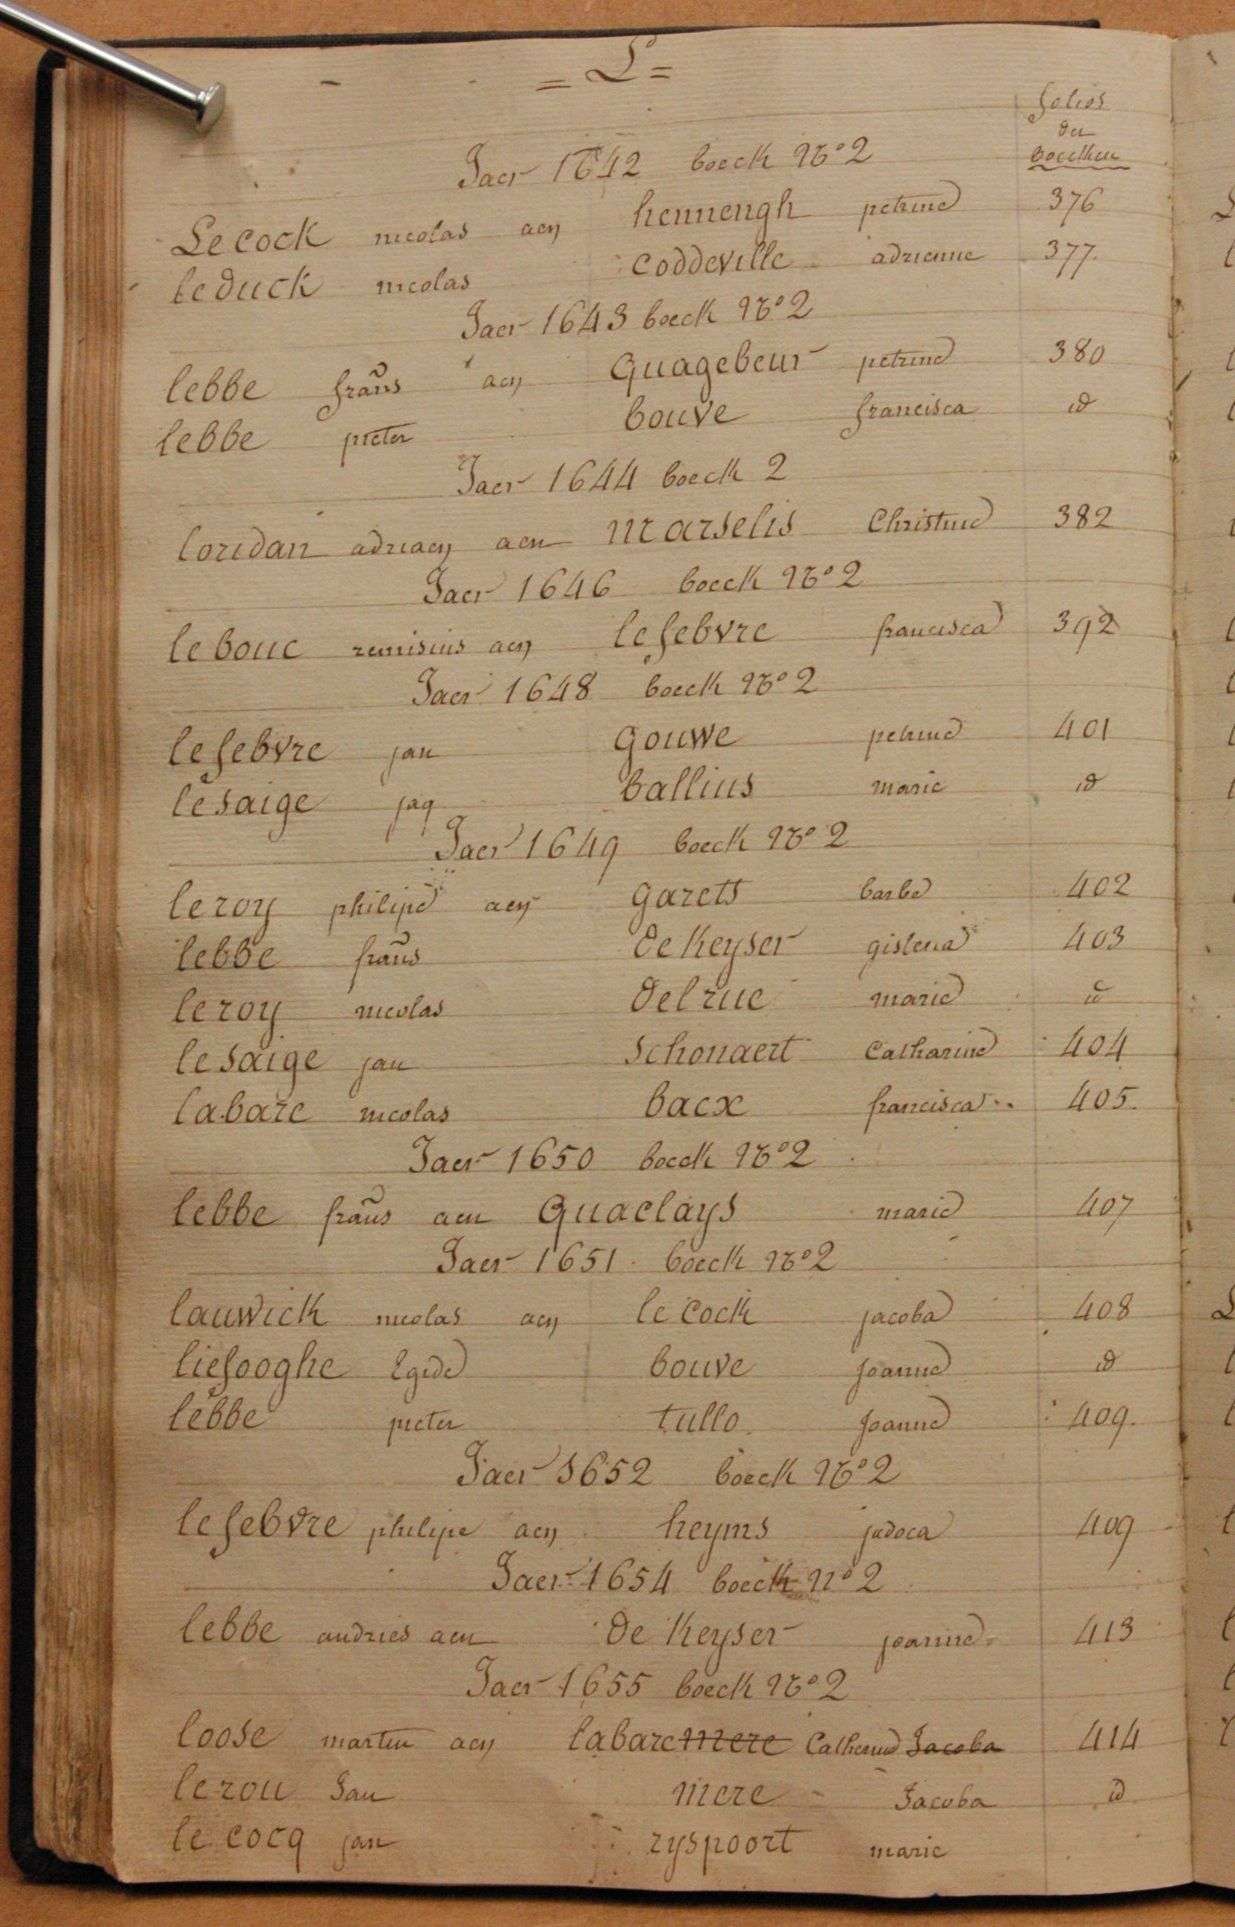 = L =
folios
der
boecken
Jaer 1642 boeck No 2
Le cock nicolas aen hennengh petrine 376
leduck nicolas coddeville adrienne 377
Jaer 1643 boeck No 2
lebbe frans aen quagebeur petrine 380
lebbe pieter bouve francisca id
Jaer 1644 boeck 2
loridan adriaen aen marselis Christine 382
Jaer 1646 boeck No 2
lebouc remisius aen lefebvre francisca 392
Jaer 1648 boeck No 2
lefebvre jan gouwe petrine 401
lesaige jaq ballius marie id
Jaer 1649 boeck No 2
leroy philipe aen garets barbe 402
lebbe frans de keyser gislena 403
leroy nicolas delrue marie id
lesaige jan schonaert Catharine 404
labare nicolas bacx francisca 405
Jaer 1650 boeck No 2
lebbe frans aen Quaclays marie 407
Jaer 1651 boeck No 2
lauwick nicolas aen le cock jacoba 408
liefooghe Egide bouve joanne id
lebbe pieter tullo joanne 409
Jaer 1652 boeck No 2
lefebvre philipe aen heyms judoca 409
Jaer 1654 boeck No 2
lebbe andries aen de keyser joanne 413
Jaer 1655 boeck No 2
loose martin aen labare mere Catherine Jacoba 414
lerou Jan mere Jacoba id
le cocq jan ryspoort marie